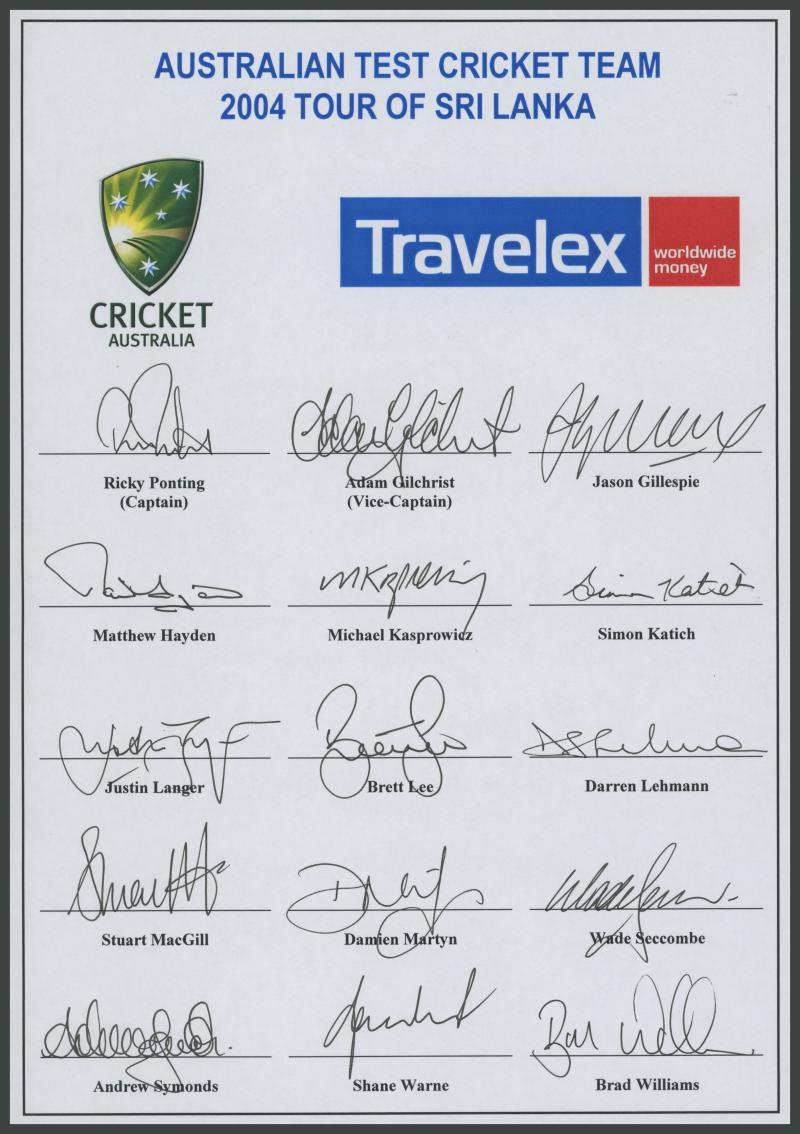 AUSTRALIAN TEST CRICKET TEAM
2004 TOUR OF SRI LANKA
Travelex
worldwide
money
CRICKET
AUSTRALIA
Ricky Ponting
(Captain)
Adam Gilchrist
(Vice-Captain)
Jason Gillespie
Simon Katich
Matthew Hayden
Michael Kasprowicz
Simon Katich
Justin Langer
Brett Lee
Darren Lehmann
Stuart MacGill
Damien Martyn
Wade Seccombe
Andrew Symonds
Shane Warne
Brad Williams